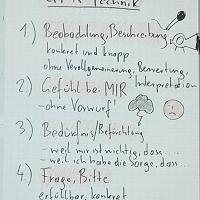 Technik
1.) Beobachtung, Beschreibung
konkret und knapp
ohne Verallgemeinerung, Bewertung,
Interpretation
2.) Gefühl bei MIR
- ohne Vorwurf!
3.) Bedürfnis/Befürchtung
- weil mir ist wichtig, dass...
- weil ich habe die Sorge, dass...
4.) Frage, Bitte
erfüllbar, konkret